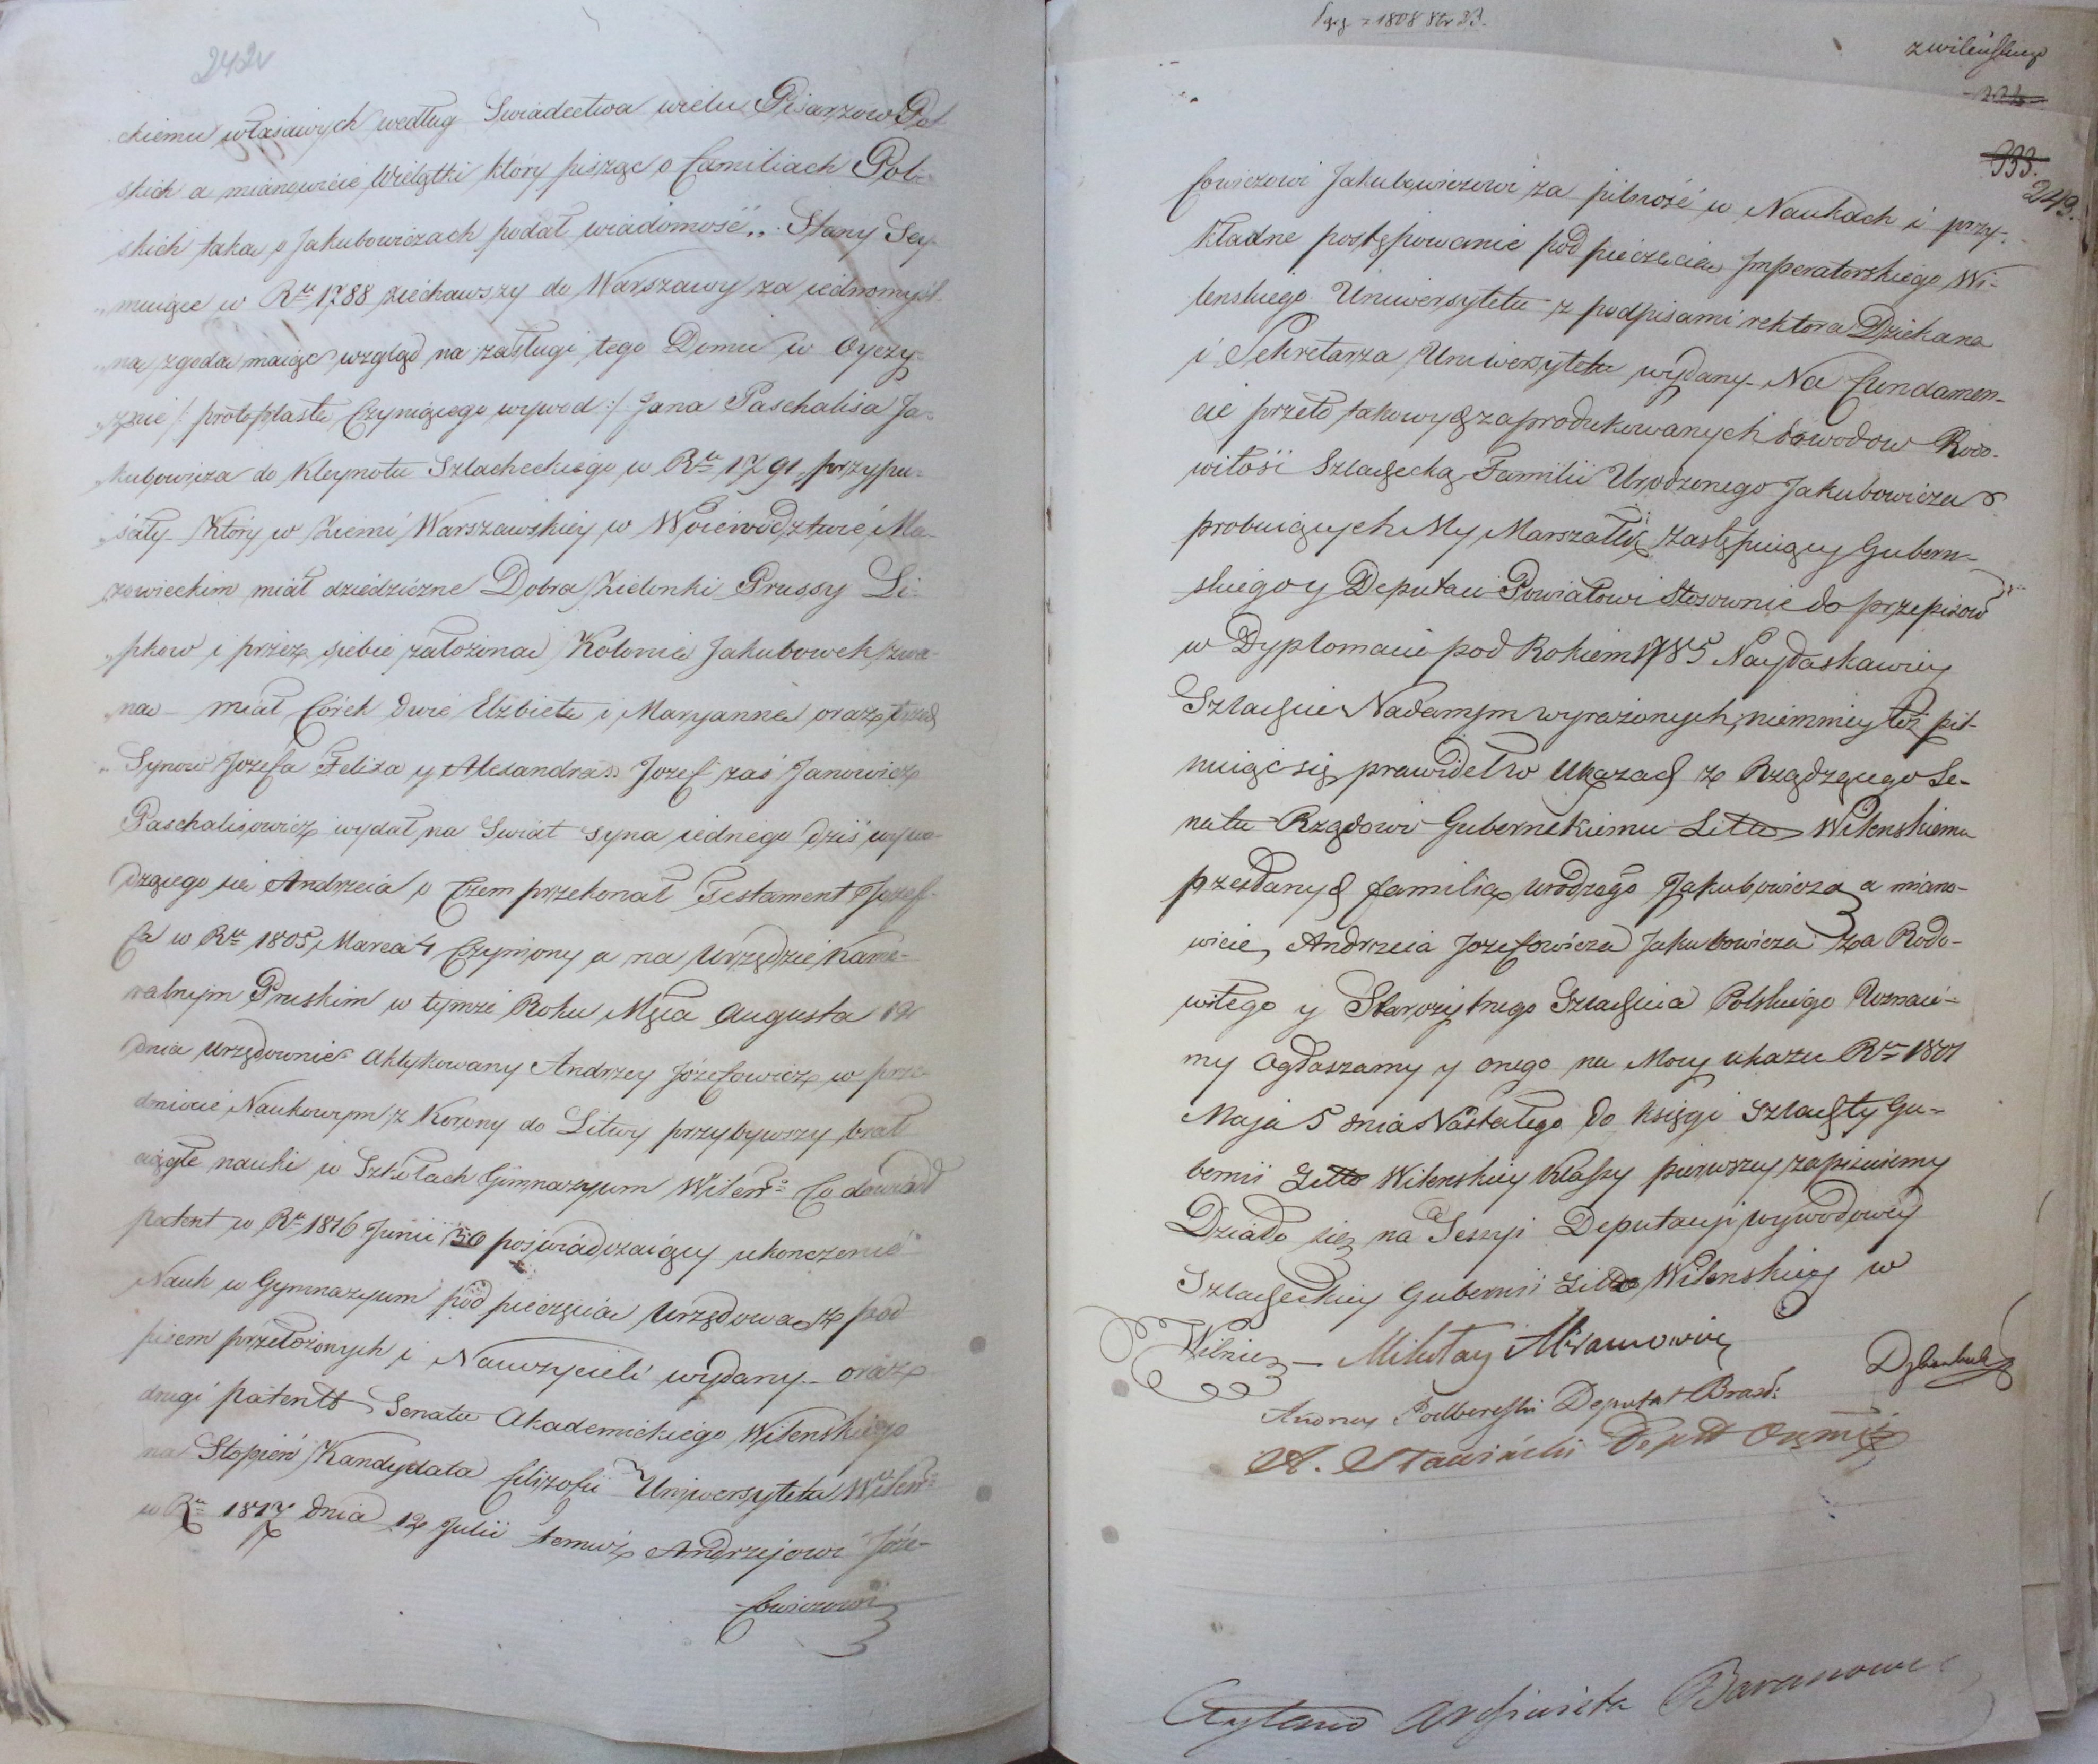 242v
ckiemu właściwych według Swiadectwa wielu Pisarzow Pol
skich a mianowicie Wielątki który pisząc o familiach Pol-
skich taką o Jakubowiczach podał wiadomość „ Stany Sey-
„muiące w R̲u̲ 1788 ziechawszy do Warszawy za iednomyśl-
„ną zgodą maiąc wzgląd na zasługi tego Domu w Oyczy-
„znie /: protoplastę Czyniącego wywod :/ Jana Paschalisa Ja-
„kubowicza do Kleynotu Szlacheckiego w R̲u̲ 1791 przypu-
„ściły. Który w Ziemi Warszawskiey w Woiewodztwie Ma-
zowieckim miał dziedziczne Dobra Zielonki Prussy Li-
„pkow i przez siebie założoną Kolonią Jakubowek zwa-
„ną – miał Córek dwie Elżbietę i Maryannę oraz trzech
„Synow Jozefa Felixa y Alexandra„ Jozef zaś Janowicz
Paschalisowicz wydał na Swiat syna iednego dziś wywo-
dzącego się Andrzeia o Czem przekonał Testament Jozef-
fa w R̲u̲ 1805 Marca 4 Czyniony a na Urzędzie Kame-
ralnym Pruskim w tymże Roku Mca Augusta 12
dnia urzędownie aktykowany Andrzey Józefowicz w prze-
dmiocie Naukowym z Korony do Litwy przybywszy brał
ciągłe nauki w Szkołach Gimnazyum Wileń° Co dowiódł
patent w R̲u̲ 1816 Junii 30 poświadczaiący ukonczenie
Nauk w Gymnazyum pod pieczęcią Urzędową z pod
pisem przełożonych i Nauczycieli wydany – oraz
drugi patent z Senatu Akademickiego Wilenskiego
na Stopień Kandydata filizofii Uniwersytetu Wileń°
w R̲u̲ 1817 dnia 12 Julii temuż Andrzejowi Józe-
fowiczowi
1808 Str 23.
z wileńskiego
933.
249.
fowiczowi Jakubowiczowi za pilność w Naukach i przy-
kładne postępowanie pod pieczęcią Imperatorskiego Wi-
lenskiego Uniwersytetu z podpisami rektora Dziekana
i Sekretarza Uniwersytetu wydany – Na fundamen-
cie przeto takowych zaprodukowanych dowodow Rodo-
witość Szlachecką Familii Urodzonego Jakubowicza
probuiących My Marszałek zastępuiący Gubern-
skiego y Deputaci Powiatowi Stosownie do przepisow
w Dyplomacie pod Rokiem 1785 Nayłaskawiey
Szlachcie Nadanym wyrażonych, niemniey też pil-
nuiąc się prawideł w Ukazach z Rządzącego Se-
natu Rządowi Guberńskiemu Litto Wilenskiemu
przesłanych familią urodzgo Jakubowicza a miano-
wicie, Andrzeia Jozefowicza Jakubowicza za Rodo-
witego y Starożytnego Szlachcica Polskiego Uznaie-
my Ogłaszamy y onego na Mocy ukazu R̲u̲ 1801
Maja 5 dnia Nastałego do księgi Szlachty Gu-
bernii Litto Wilenskiey klassy pierwszey zapisuiemy
Działo się na Sessyi Deputacyi wywodowey
Szlacheckiey Gubernii Litto Wilenskiey w
Wilnie – Mikołay Abramowicz
Andrzey Podbereski Deputat Brasł:
A. Sławiński Dept Oszmiń
Czytano Archiwista Baranowi